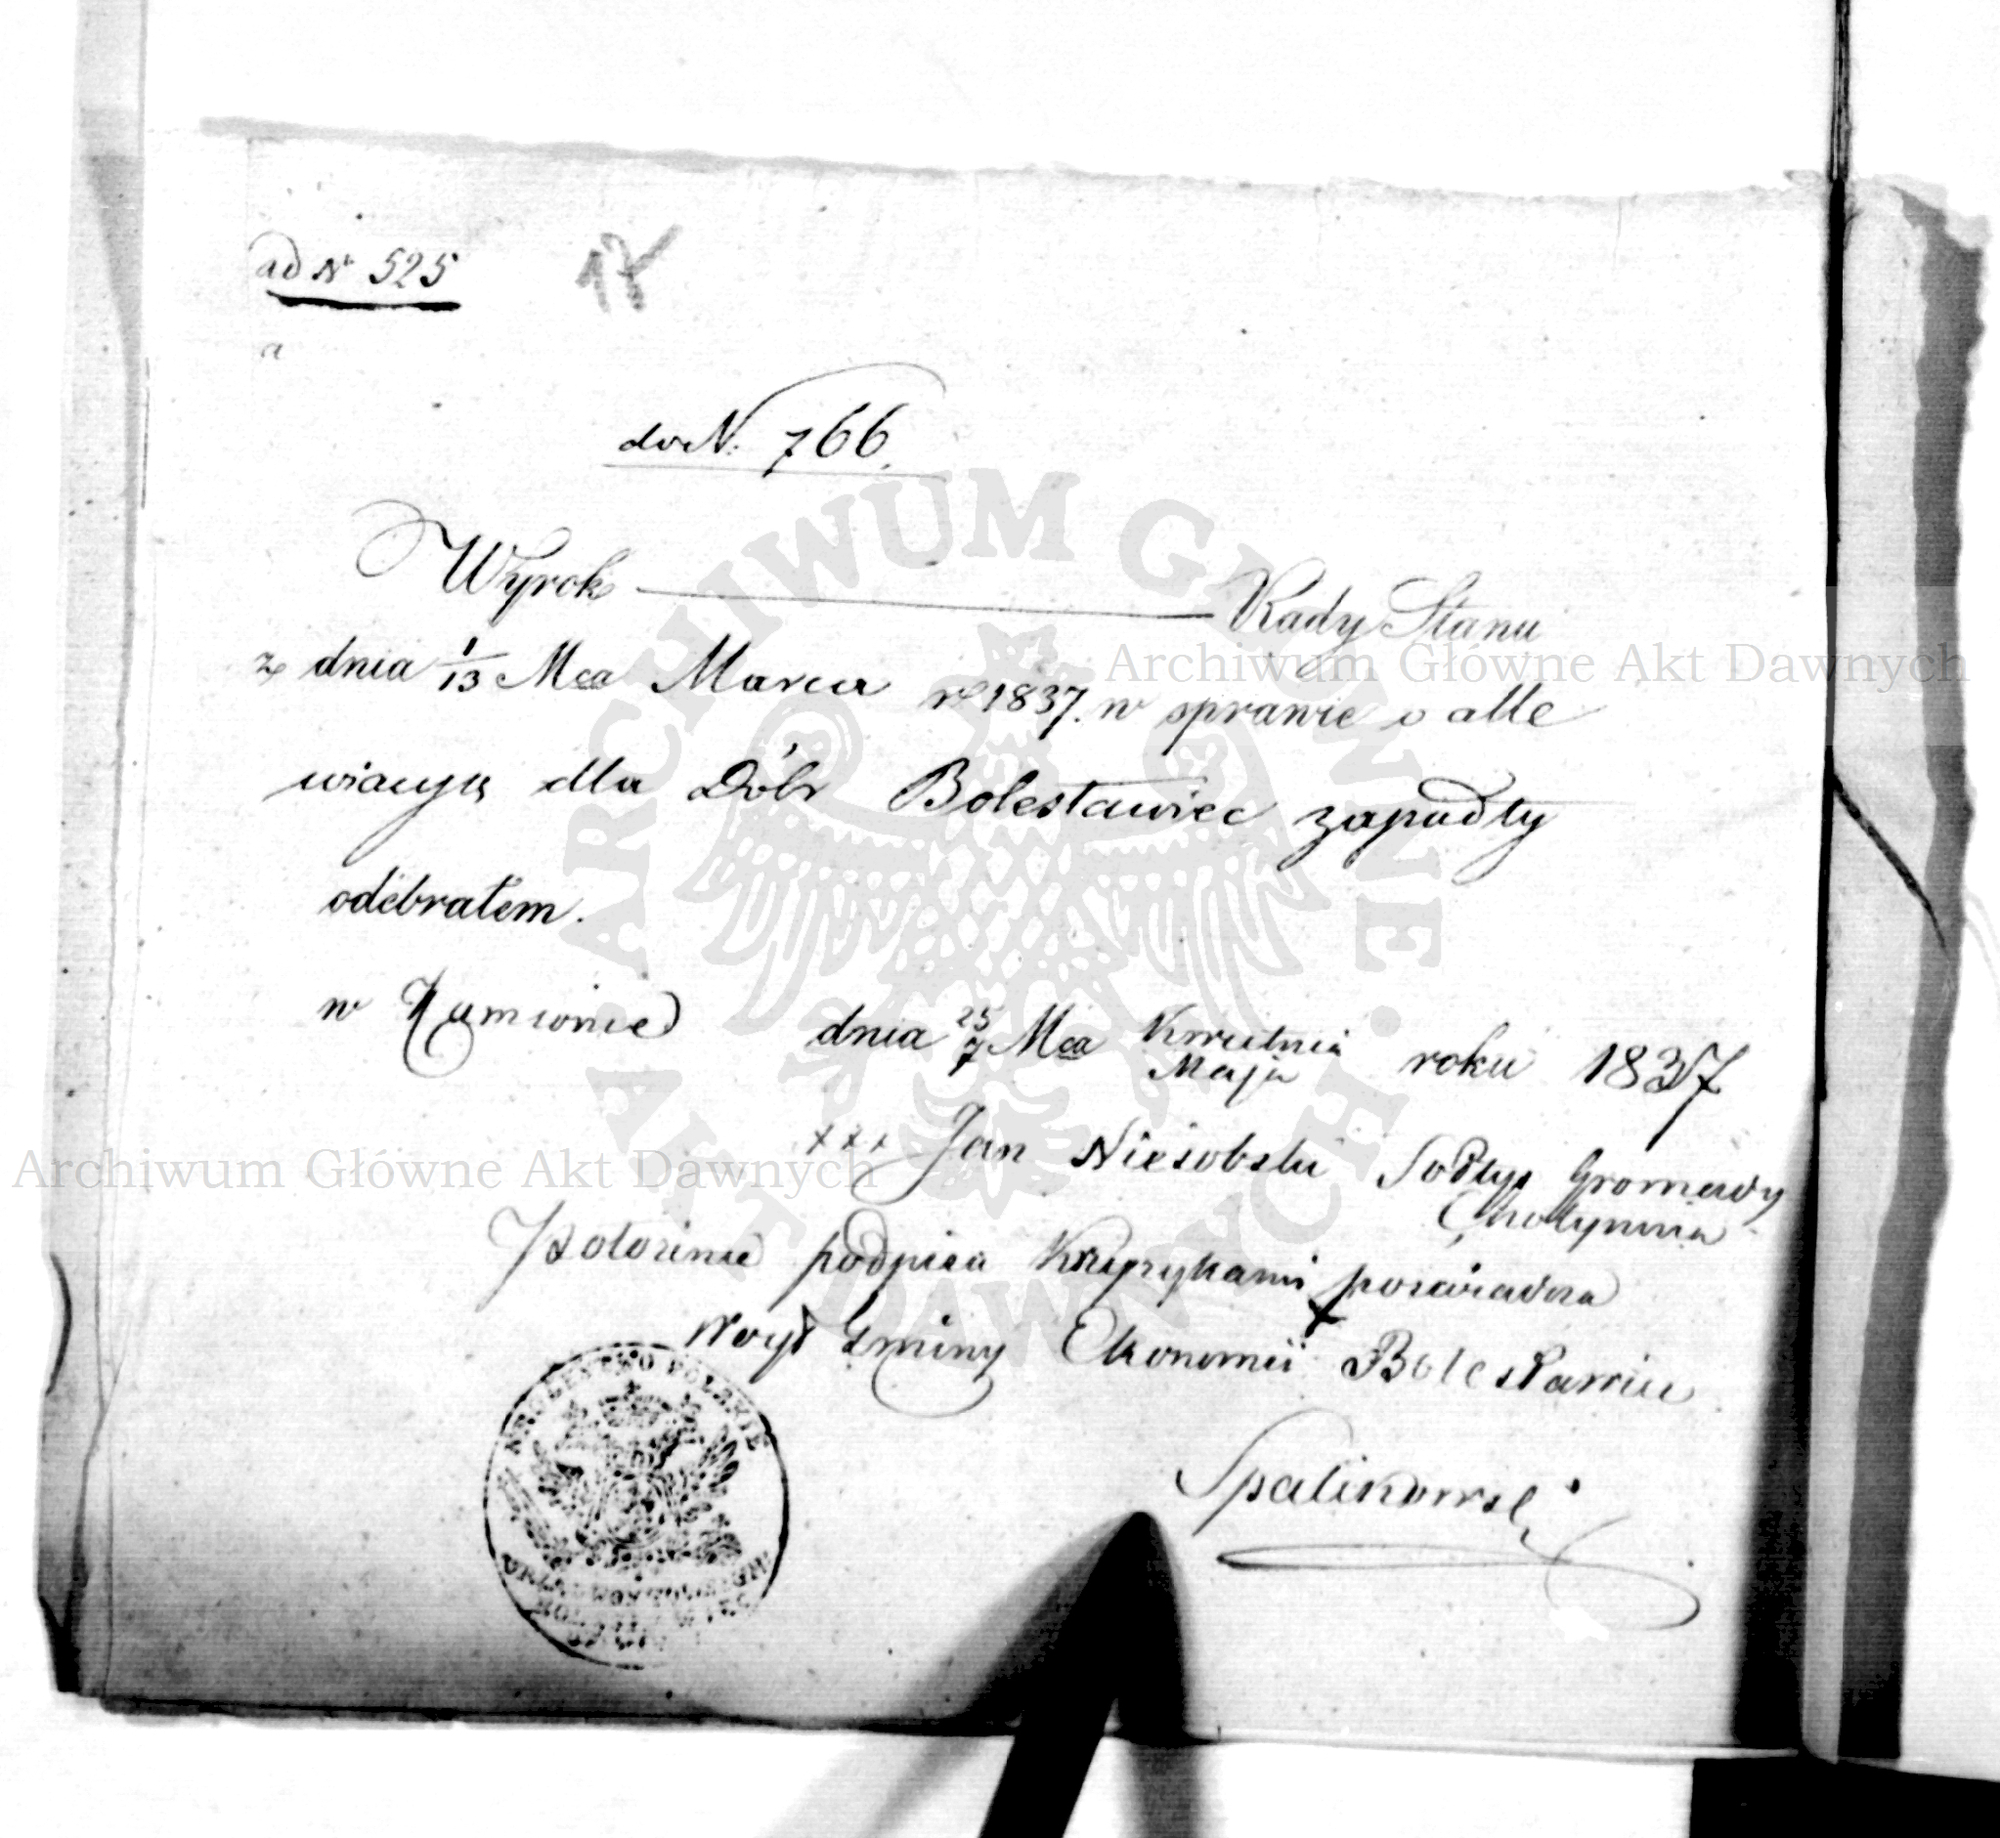 ad Nr 525
17
a
do N. 766.
Wyrok — Rady Stanu
z dnia 1/13 Mca Marca r 1837. w sprawie o alle
wiacyą dla Dóbr Bolesławiec zapadły
odebrałem.
w Kamionce dnia 25/7 Mca Kwietnia/Maja roku 1837
+++ Jan Niesobski Sołtys Gromady
Chotynnia
podpisu Krzyzykami poswiadcza
Woyt Gminy Ekonomii Bolesławiec
Spalikowski
KROLESTWO POLSKIE
Archiwum Główne Akt Dawnych
Archiwum Główne Akt Dawnych
ARCHIWUM GŁÓWNE AKT DAWNYCH